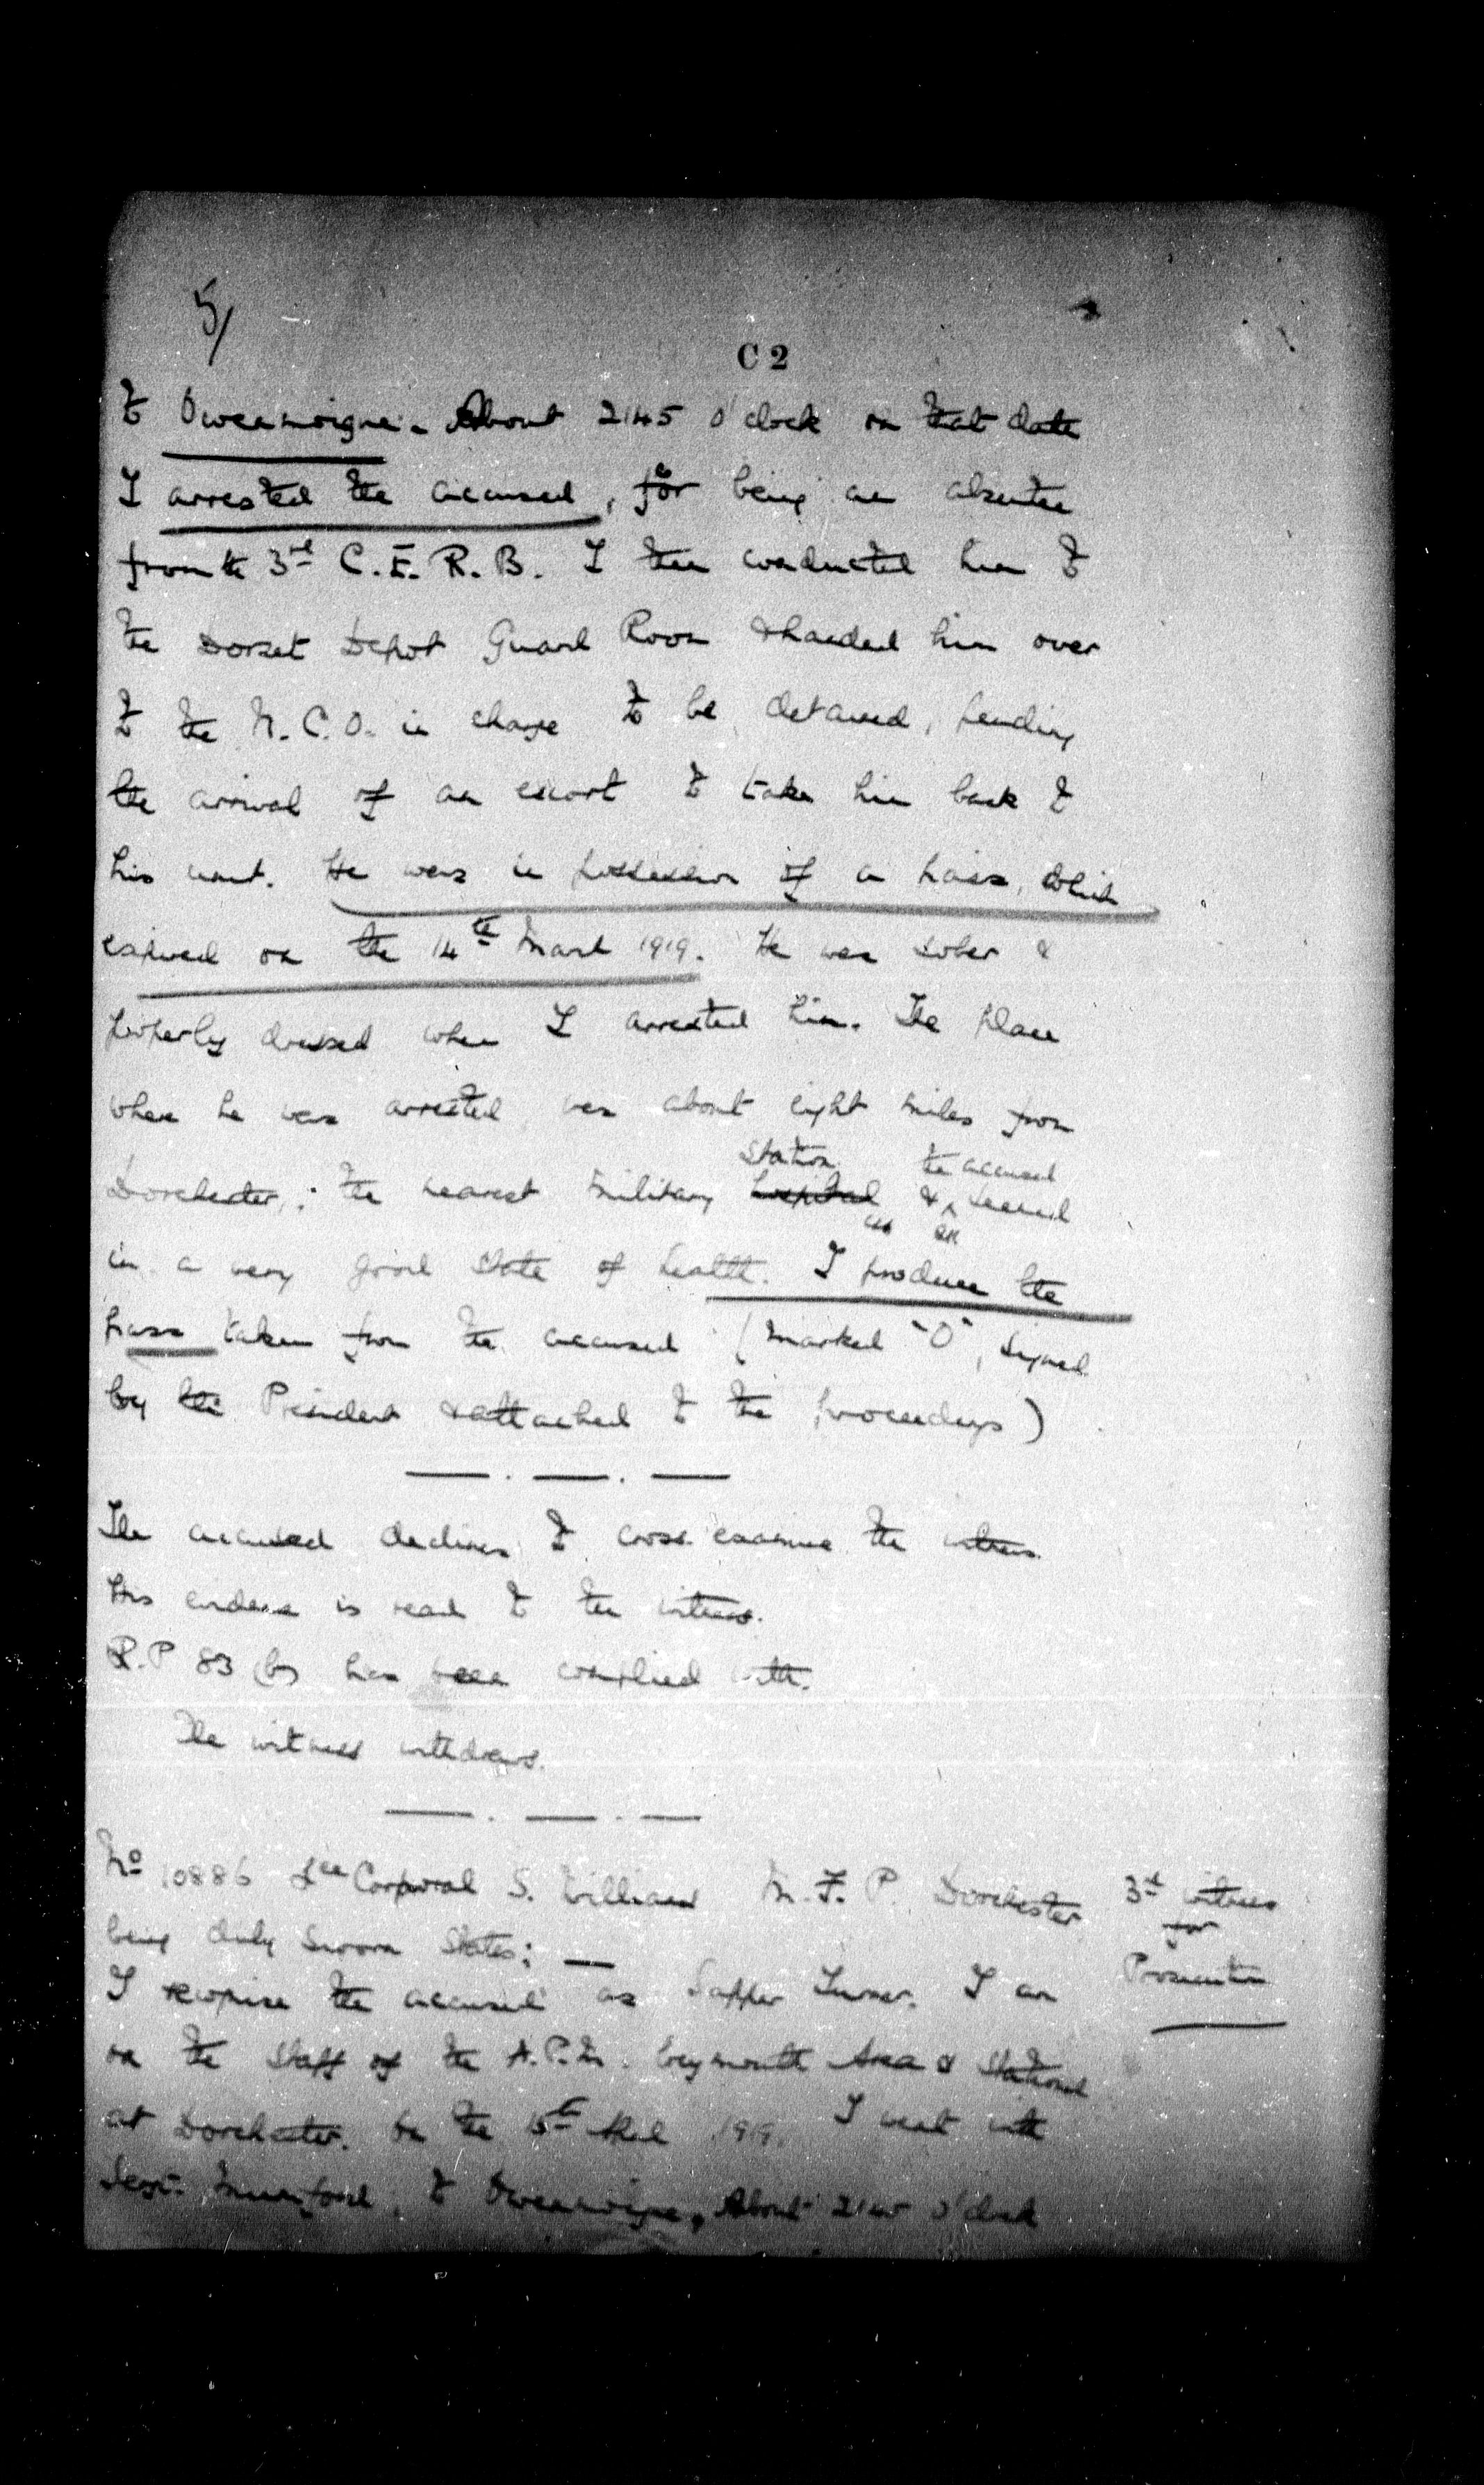 5/
C 2
to Owermoigne. About 2.45 o'clock on that date
I arrested the accused, for being an absentee
from the 3rd C.E.R.B. I then conducted him to
the Dorset Depot Guard Room & handed him over
to the N.C.O. in charge to be detained, pending
the arrival of an escort to take him back to
his unit. He was in possession of a pass, which
expired on the 14th March 1919. He was sober &
properly dressed when I arrested him. The place
where he was arrested was about eight miles from
Station the accused
Dorchester,: the nearest military hospital & ^ seemed
in a very good state of health. I produce the
pass taken from the accused (marked "O", signed
by the President & attached to the proceedings)
The accused declines to cross examine the witness.
His evidence is read to the witness.
R.P 83 (b) has been complied with.
The witness withdraws.
No 10886 Lce Corporal S. Williams M.F.P. Dorchester 3rd witness
for
being duly sworn states: —
Prosecution
I recognise the accused as Sapper Turner. I am
on the staff of the A.P.M. Weymouth Area & stationed
at Dorchester. On the 15th 1919. I went with
Sergt. Mumford, to Owermoigne, About 2.45 o'clock